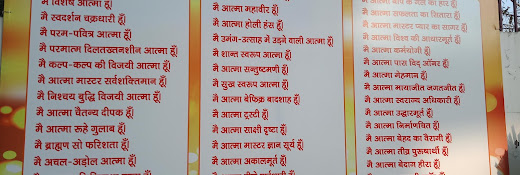 मैं विशेष आत्मा हूँ।
मैं स्वदर्शन चक्रधारी हूँ।
मैं परम-पवित्र आत्मा हूँ।
मैं परमात्म दिलतख्तनशीन आत्मा हूँ।
मैं कल्प-कल्प की विजयी आत्मा हूँ।
मैं आत्मा मास्टर सर्वशक्तिमान हूँ।
मैं निश्चय बुद्धि विजयी आत्मा हूँ।
मैं आत्मा चैतन्य दीपक हूँ।
मैं आत्मा रूहे गुलाब हूँ।
मैं ब्राह्मण सो फरिश्ता हूँ।
मैं अचल-अडोल आत्मा हूँ।
मैं आत्मा महावीर हूँ।
मैं आत्मा होली हंस हूँ।
मैं उमंग-उत्साह में उड़ने वाली आत्मा हूँ।
मैं शान्त स्वरूप आत्मा हूँ।
मैं आत्मा सन्तुष्टमणी हूँ।
मैं सुख स्वरूप आत्मा हूँ।
मैं आत्मा बेफिक्र बादशाह हूँ।
मैं आत्मा ट्रस्टी हूँ।
मैं आत्मा साक्षी दृष्टा हूँ।
मैं आत्मा मास्टर ज्ञान सूर्य हूँ।
मैं आत्मा अकालमूर्त हूँ।
मैं आत्मा बाप के गले का हार हूँ।
मैं आत्मा सफलता का सितारा हूँ।
मैं आत्मा मास्टर प्यार का सागर हूँ।
मैं आत्मा विश्व की आधारमूर्त हूँ।
मैं आत्मा कर्मयोगी हूँ।
मैं आत्मा पास विद् ऑनर हूँ।
मैं आत्मा मेहमान हूँ।
मैं आत्मा मायाजीत जगतजीत हूँ।
मैं आत्मा स्वराज्य अधिकारी हूँ।
मैं आत्मा उद्धारमूर्त हूँ।
मैं आत्मा निर्माणचित हूँ।
मैं आत्मा बेहद का वैरागी हूँ।
मैं आत्मा तीव्र पुरूषार्थी हूँ।
मैं आत्मा बेदाग हीरा हूँ।